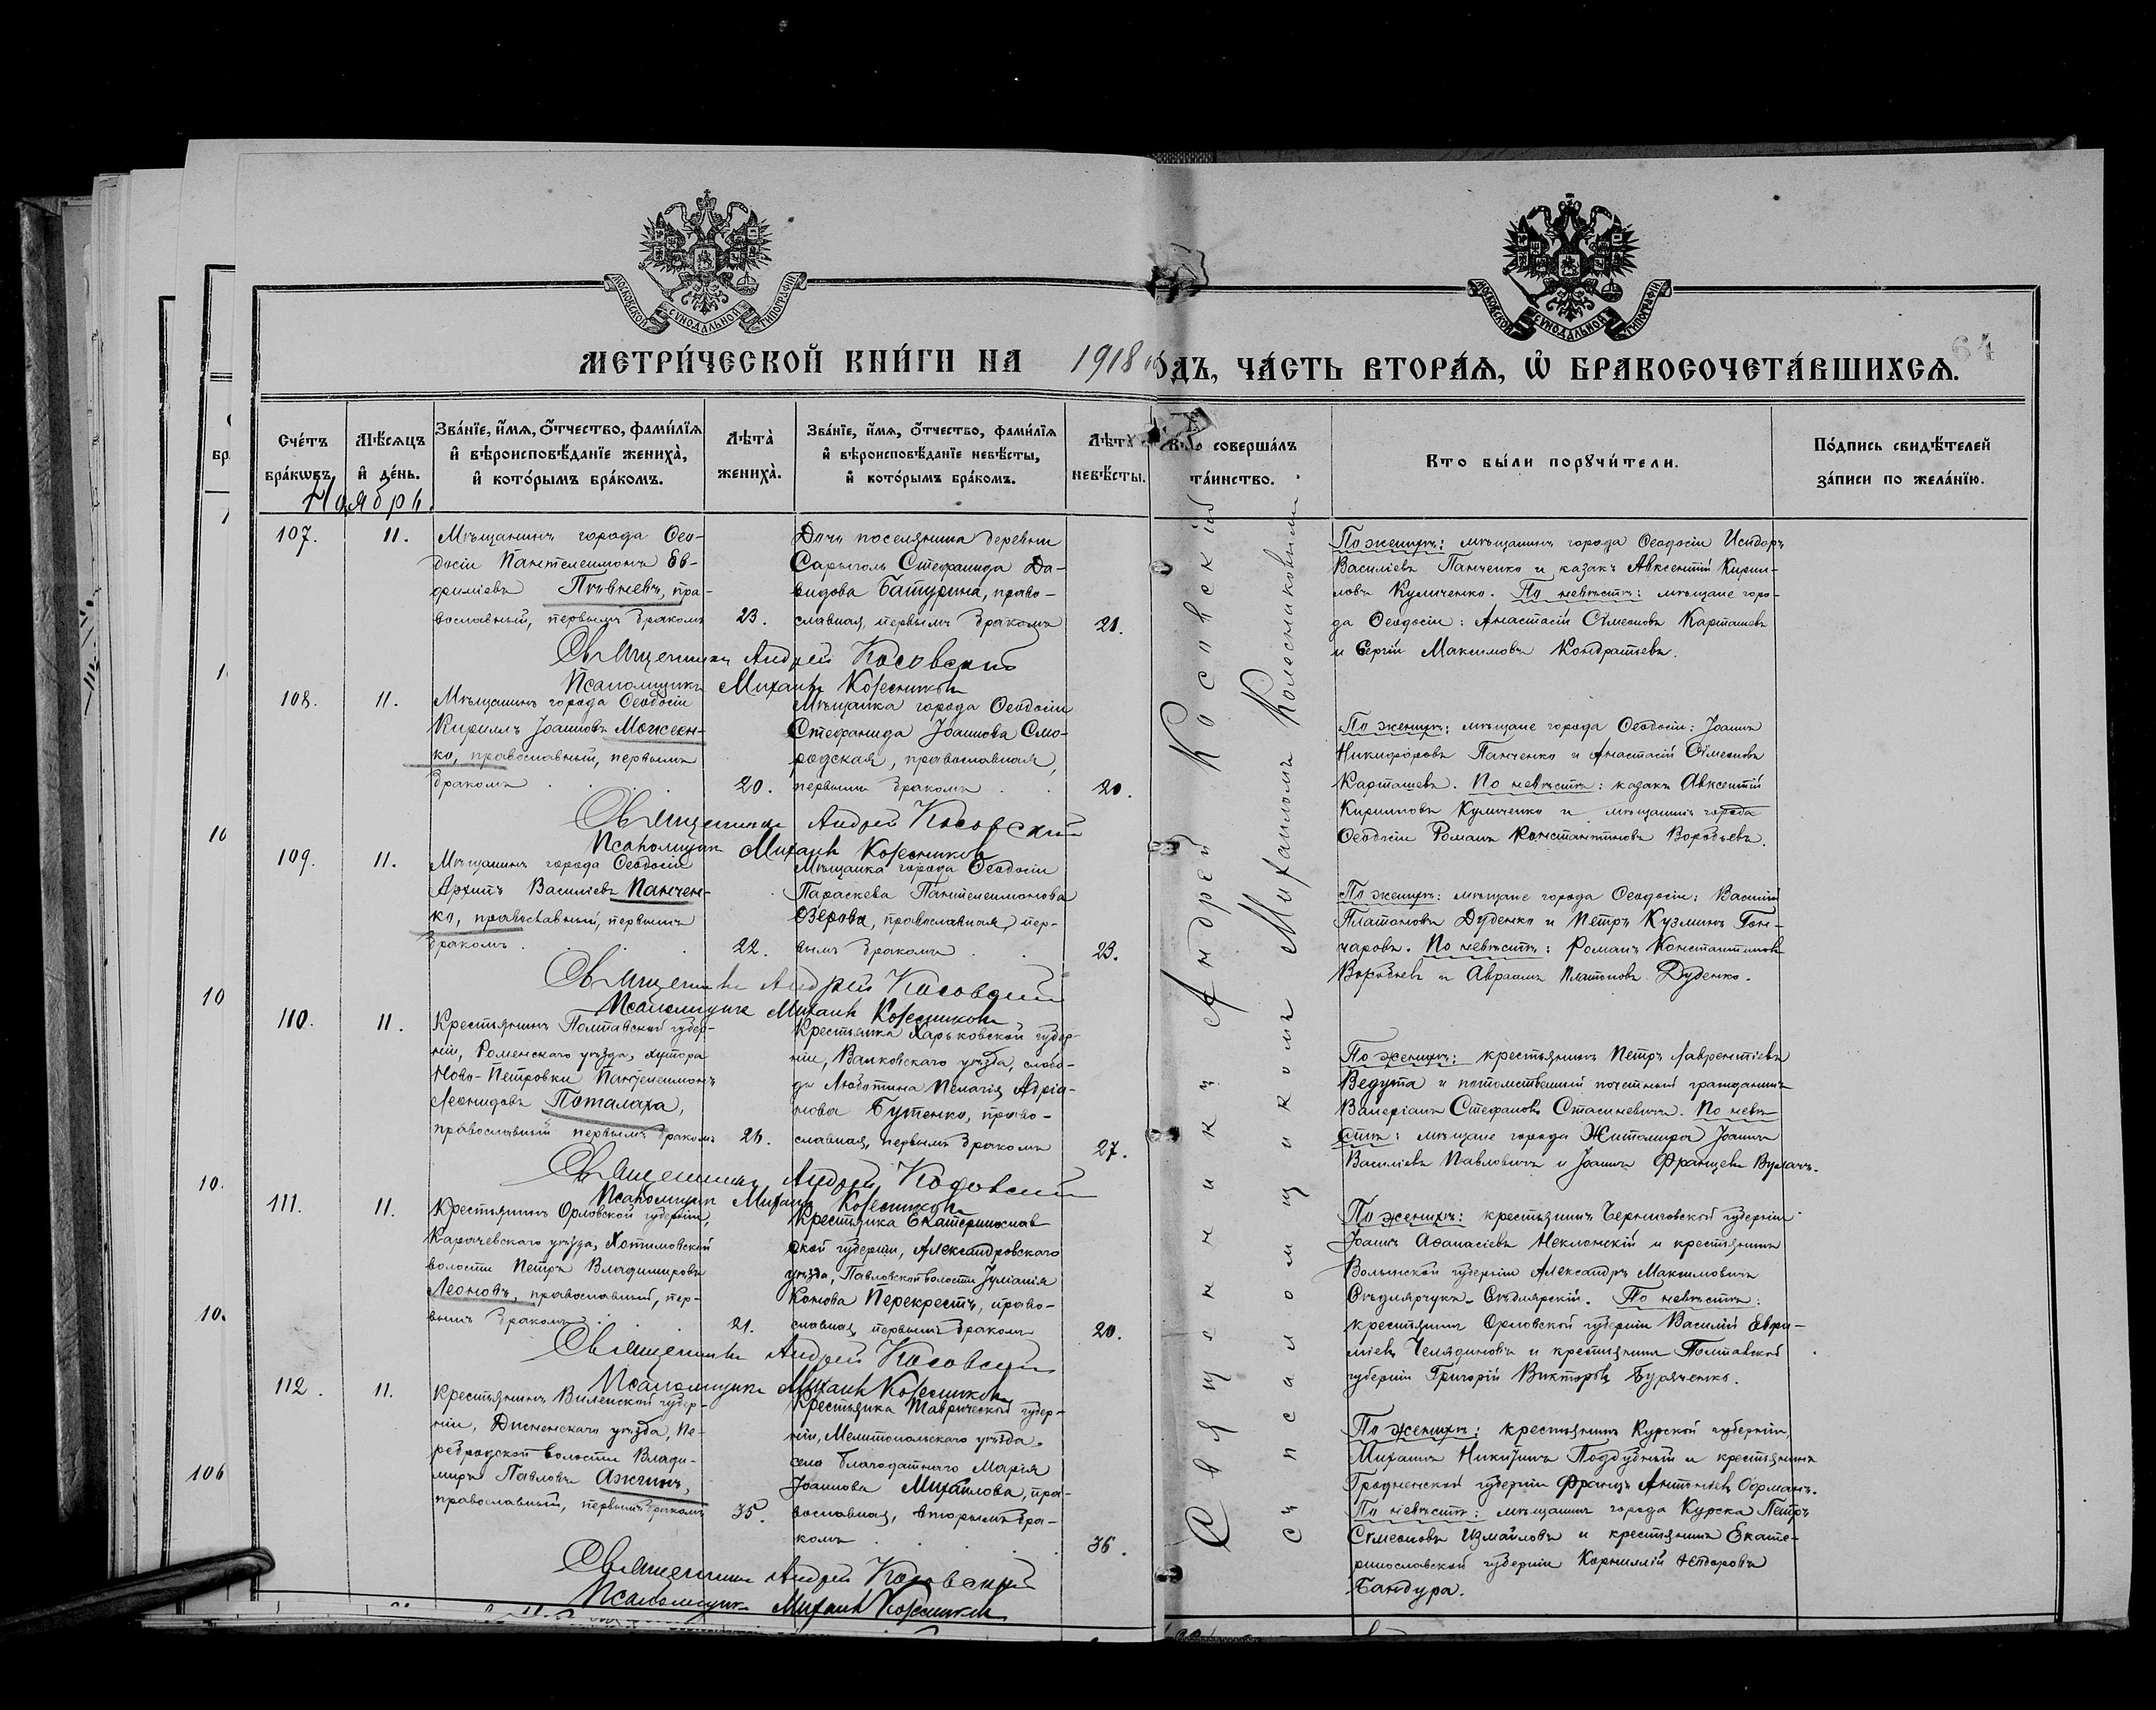 МОСКОВСКОЙ СѴНОДАЛЬНОЙ ТИПОГРАФІИ
МОСКОВСКОЙ СѴНОДАЛЬНОЙ ТИПОГРАФІИ
64
МЕТРИ́ЧЕСКОЙ КНИ́ГИ НА 1918 ГОДЪ, ЧА́СТЬ ВТОРА́Ѧ, Ѽ БРАКОСОЧЕТА́ВШИХСѦ.
Сче́тъ бра́кѡвъ.
Мѣ́сяцъ и҆ де́нь.
Зва́нїе, и҆́мѧ, ѻ҆́тчество, фами́лїѧ и҆ вѣроисповѣ́данїе жениха̀, и҆ кото́рымъ бра́комъ.
Лѣта̀ жениха̀.
Зва́нїе, и҆́мѧ, ѻ҆́тчество, фами́лїѧ и҆ вѣроисповѣ́данїе невѣ́сты, и҆ кото́рымъ бра́комъ.
Лѣта̀ невѣ́сты.
Кто соверша́лъ та́инство.
Кто бы́ли порꙋчи́тели.
По́дпись свидѣ́телей за́писи по жела́нїю.
Ноябрь.
107.
11.
Мѣщанинъ города Ѳео-
досіи Пантелеимонъ Ев-
фиміевъ Пѣвневъ, пра-
вославный, первымъ бракомъ
23.
Дочь поселянина деревни
Сарыголь Стефанида Да-
видова Батурина, право-
славная, первымъ бракомъ
21.
По женихѣ: мѣщанинъ города Ѳеодосіи Исидоръ
Василіевъ Панченко и казакъ Авксентій Кирил-
ловъ Куличенко. По невѣстѣ: мѣщане горо-
да Ѳеодосіи: Анастасій Сѵмеоновъ Карташевъ
и Сергій Максимовъ Кондратьевъ.
Священникъ Андрей Косовский
Псаломщикъ Михаилъ Колесниковъ
108.
11.
Мѣщанинъ города Ѳеодосіи
Кириллъ Іоанновъ Моисеен-
ко, православный, первымъ
бракомъ
20.
Мѣщанка города Ѳеодосіи
Стефанида Іоаннова Смо-
родская, православная,
первымъ бракомъ
20.
По женихѣ: мѣщане города Ѳеодосіи: Іоаннъ
Никифоровъ Панченко и Анастасій Сѵмеоновъ
Карташевъ. По невѣстѣ: казакъ Авксентій
Кирилловъ Куличенко и мѣщанинъ города
Ѳеодосіи Романъ Константиновъ Воробьевъ.
Священникъ Андрей Косовский
Псаломщикъ Михаилъ Колесниковъ
109.
11.
Мѣщанинъ города Ѳеодосіи
Архипъ Василіевъ Панчен-
ко, православный, первымъ
бракомъ
22.
Мѣщанка города Ѳеодосіи
Параскева Пантелеимонова
Озерова, православная, пер-
вымъ бракомъ
23.
По женихѣ: мѣщане города Ѳеодосіи: Василій
Платоновъ Дуденко и Петръ Кузминъ Гон-
чаровъ. По невѣстѣ: Романъ Константиновъ
Воробьевъ и Авраамъ Платоновъ Дуденко.
Священникъ Андрей Косовский
Псаломщикъ Михаилъ Колесниковъ
110.
11.
Крестьянинъ Полтавской губер-
ніи, Роменскаго уѣзда, хутора
Ново-Петровки Пантелеимонъ
Леонидовъ Поталаха,
православный первымъ бракомъ
26.
Крестьянка Харьковской губер-
ніи, Валковскаго уѣзда, слобо-
ды Люботина Пелагія Адріа-
нова Бутенко, право-
славная, первымъ бракомъ
27.
По женихѣ: крестьянинъ Петръ Лаврентіевъ
Ведута и потомственный почетный гражданинъ
Валеріанъ Стефановъ Стасиневичъ. По невѣ-
стѣ: мѣщане города Житомира Іоаннъ
Василіевъ Павловичъ и Іоаннъ Францевъ
Священникъ Андрей Косовский
Псаломщикъ Михаилъ Колесниковъ
111.
11.
Крестьянинъ Орловской губерніи,
Карачевскаго уѣзда, Хотимовской
волости Петръ Владимировъ
Леоновъ, православный, пер-
вымъ бракомъ
21.
Крестьянка Екатеринослав-
ской губерніи, Александровскаго
уѣзда, Павловской волости Іуліанія
Конова Перекрестъ, право-
славная, первымъ бракомъ
20.
По женихѣ: крестьянинъ Черниговской губерніи
Іоаннъ Аѳанасіевъ Неклонскій и крестьянинъ
Волынской губерніи Александръ Максимовичъ
По невѣстѣ:
крестьянинъ Орловской губерніи Василій Евфи-
міевъ Челядиновъ и крестьянинъ Полтавской
губерніи Григорій Викторовъ Буряченко.
Священникъ Андрей Косовский
Псаломщикъ Михаилъ Колесниковъ
112.
11.
Крестьянинъ Виленской губер-
ніи, Дисненскаго уѣзда, Пе-
ребродской волости Влади-
миръ Павловъ Ажгинъ,
православный, первымъ бракомъ
35.
Крестьянка Таврической губер-
ніи, Мелитопольскаго уѣзда,
села Благодатнаго Марія
Іоаннова Михайлова, пра-
вославная, вторымъ бра-
комъ
36.
По женихѣ: крестьянинъ Курской губерніи
Михаилъ Никитинъ Поддубный и крестьянинъ
Гродненской губерніи Францъ Антоніевъ Офманъ.
По невѣстѣ: мѣщанинъ города Курска Петръ
Сѵмеоновъ Измайловъ и крестьянинъ Екате-
ринославской губерніи Корнилій Ѳедоровъ
Бандура.
Священникъ Андрей Косовский
Псаломщикъ Михаилъ Колесниковъ
Священникъ Андрей Косовскій
съ псаломщикомъ Михаиломъ Колесниковымъ.